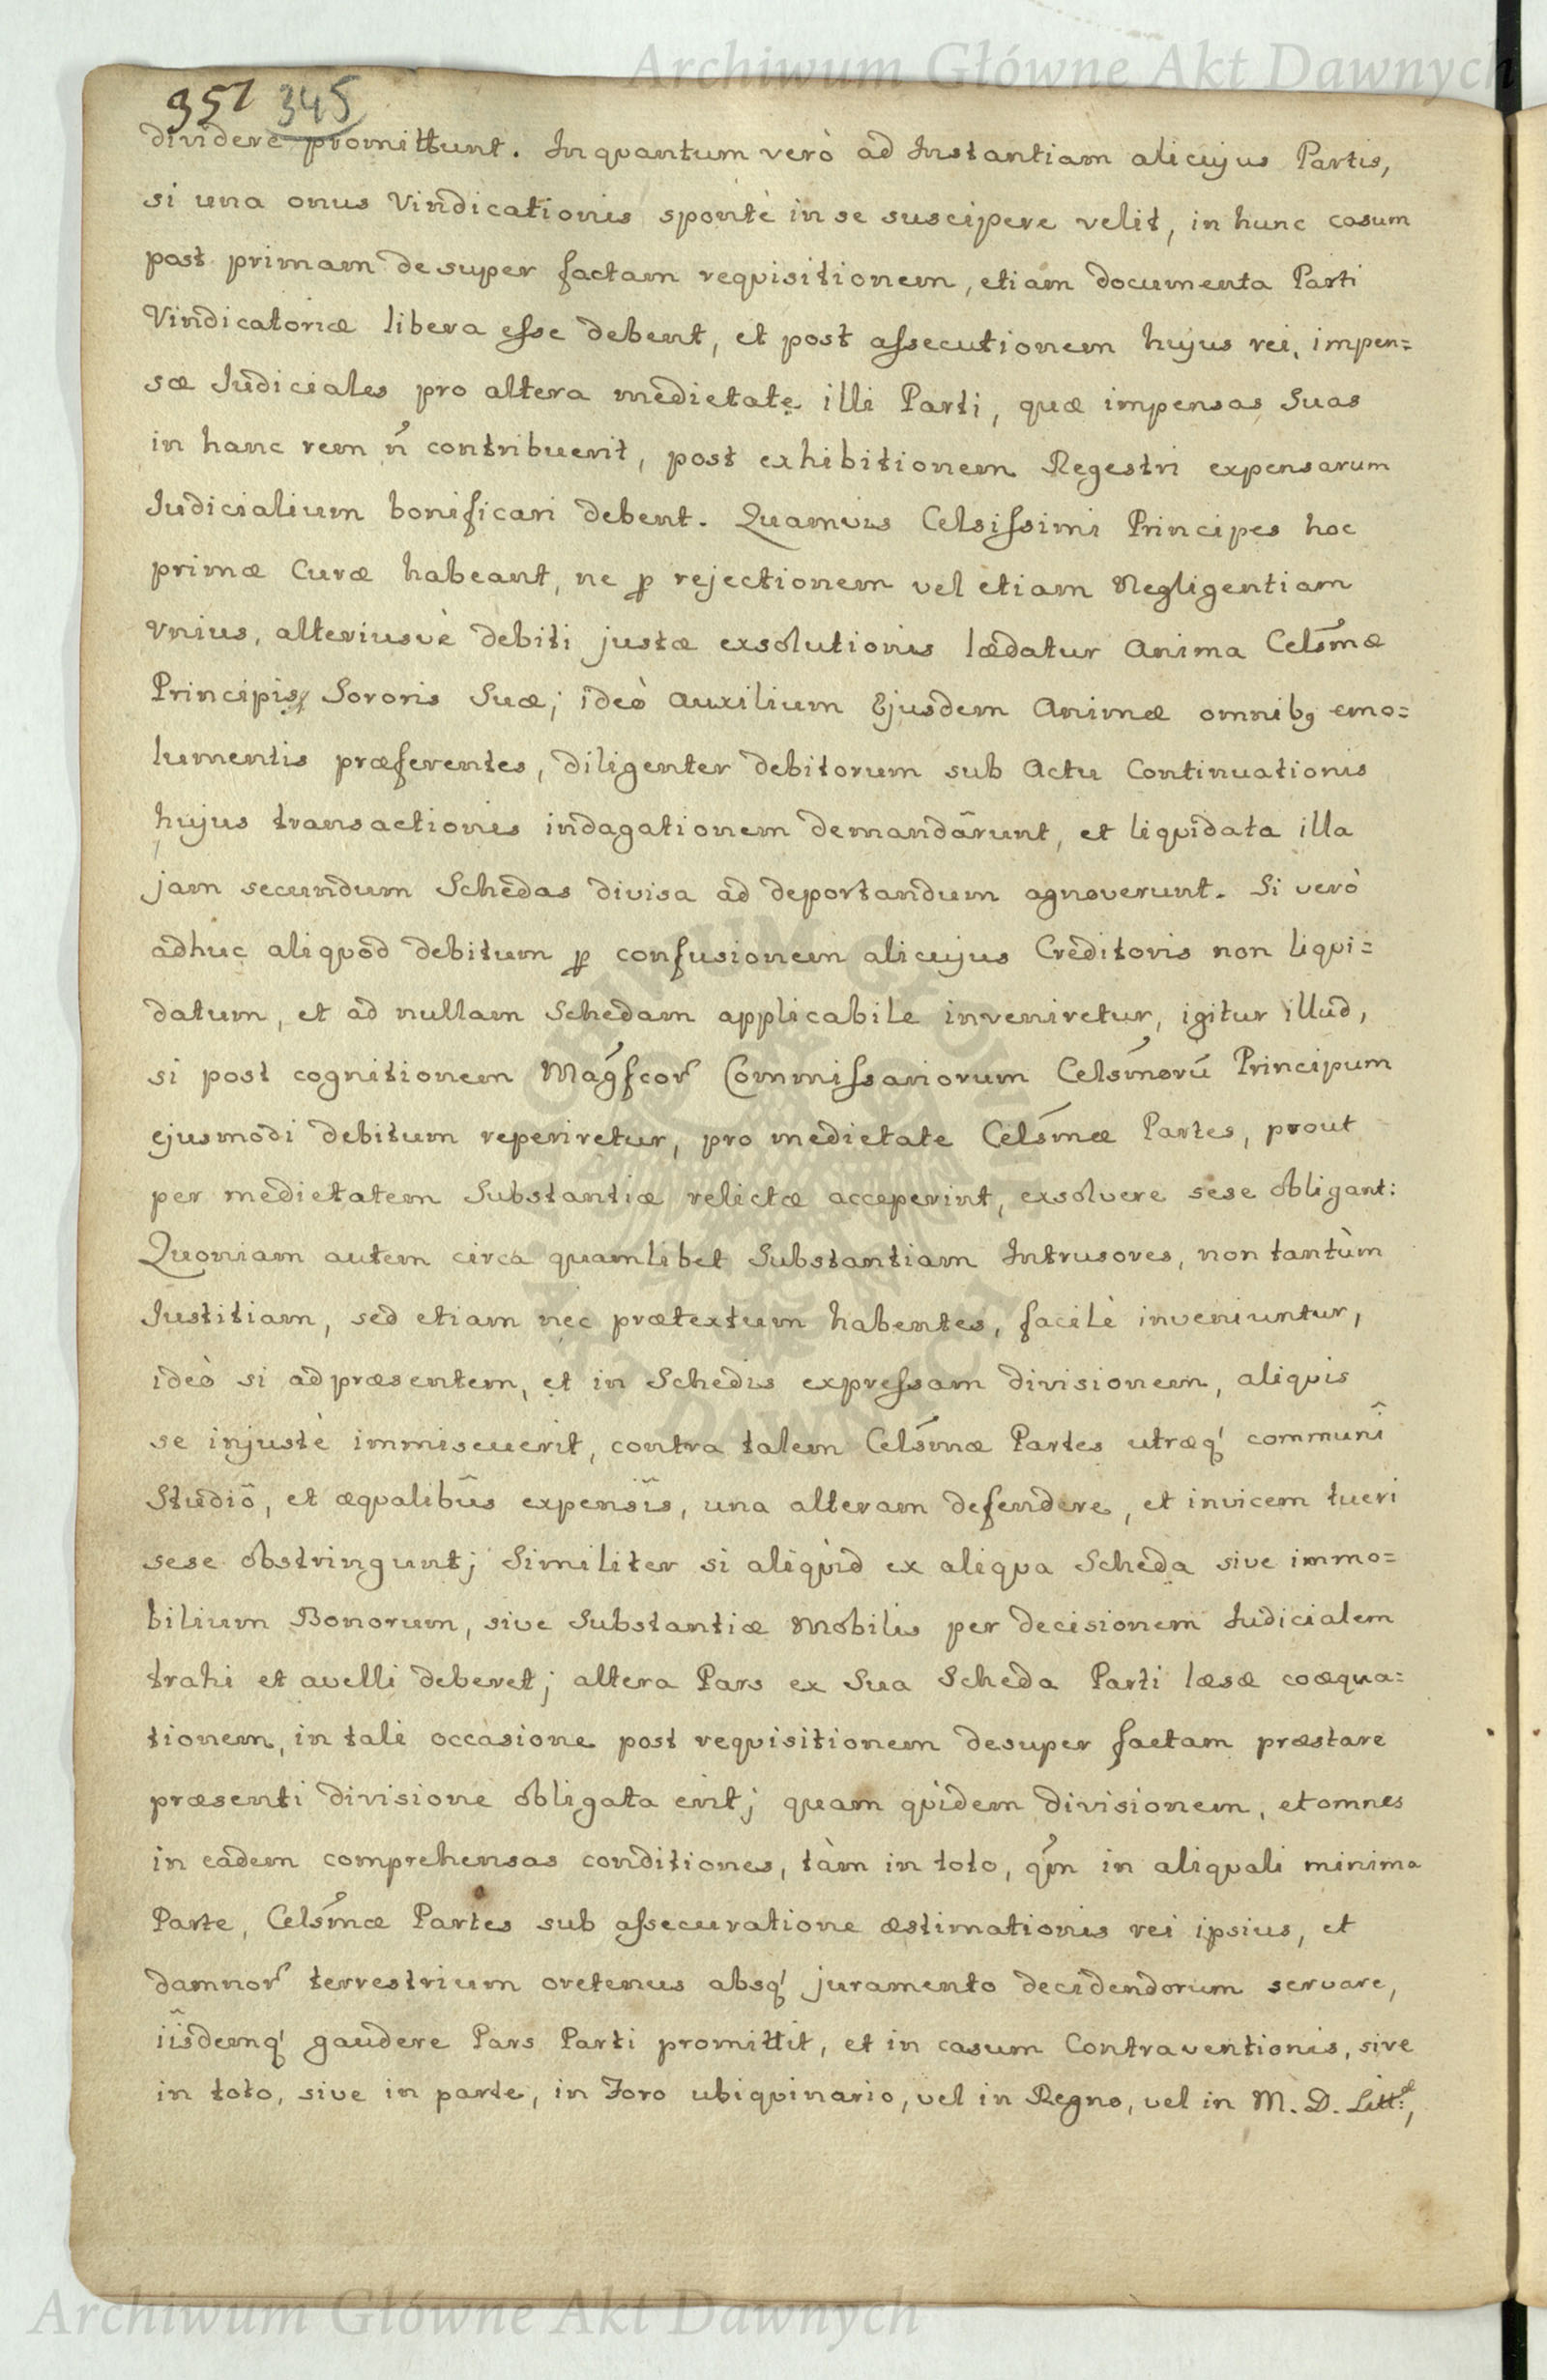 Archiwum Główne Akt Dawnych
351 345
dividere promittunt. Inquantum verò ad Instantiam alicujus Partis,
si una onus Vindicationis spontè in se suscipere velit, in hunc casum
post primam desuper factam requisitionem, etiam documenta Parti
Vindicatoriæ libera eſse debent, et post aſsecutionem hujus rei, impen=
sæ Judiciales pro altera medietate illi Parti, quæ impensas Suas
in hanc rem n̄ contribuerit, post exhibitionem Regestri expensarum
Judicialium bonificari debent. Quamvis Celsiſsimi Principes hoc
primæ Curæ habeant, ne ꝑ rejectionem vel etiam Negligentiam
Vnius, alteriusvè debiti justæ exsolutionis lædatur Anima Celsm̃æ
Principis, Sororis Suæ; ideò Auxilium Ejusdem Animæ omnibꝫ emo=
lumentis præferentes, diligenter debitorum sub Actu Continuationis
hujus transactionis indagationem demandârunt, et liquidata illa
jam secundum Schedas divisa ad deportandum agnoverunt. Si verò
adhuc aliquod debitum ꝑ confusionem alicujus Creditoris non liqui=
datum, et ad nullam Schedam applicabile inveniretur, igitur illud,
si post cognitionem Mágfcor̃ Commiſsariorum Celsm̃orū Principum
ejusmodi debitum reperiretur, pro medietate Celsm̃æ Partes, prout
per medietatem Substantiæ relictæ acceperint, exsolvere sese obligant:
Quoniam autem circa quamlibet Substantiam Intrusores, non tantùm
Justitiam, sed etiam nec prætextum habentes, facilè inveniuntur,
ideò si ad præsentem, et in Schedis expreſsam divisionem, aliquis
se injustè immiscuerit, contra talem Celsm̃æ Partes utræq' communî
Studiô, et æqualibûs expensîs, una alteram defendere, et invicem tueri
sese obstringunt; Similiter si aliquid ex aliqua Scheda sive immo=
bilium Bonorum, sive Substantiæ Mobilis per decisionem Judicialem
trahi et avelli deberet; altera Pars ex Sua Scheda Parti læsæ coæqua=
tionem, in tali occasione post requisitionem desuper factam præstare
præsenti divisione obligata erit; quam quidem divisionem, et omnes
in eadem comprehensas conditiones, tàm in toto, qm̃ in aliquali minima
Parte, Celsm̃æ Partes sub aſsecuratione æstimationis rei ipsius, et
damnor̃ terrestrium oretenus absq' juramento decidendorum servare,
iîsdemq' gaudere Pars Parti promittit, et in casum Contraventionis, sive
in toto, sive in parte, in Foro ubiquinario, vel in Regno, vel in M. D. Litt:æ,
Archiwum Główne Akt Dawnych